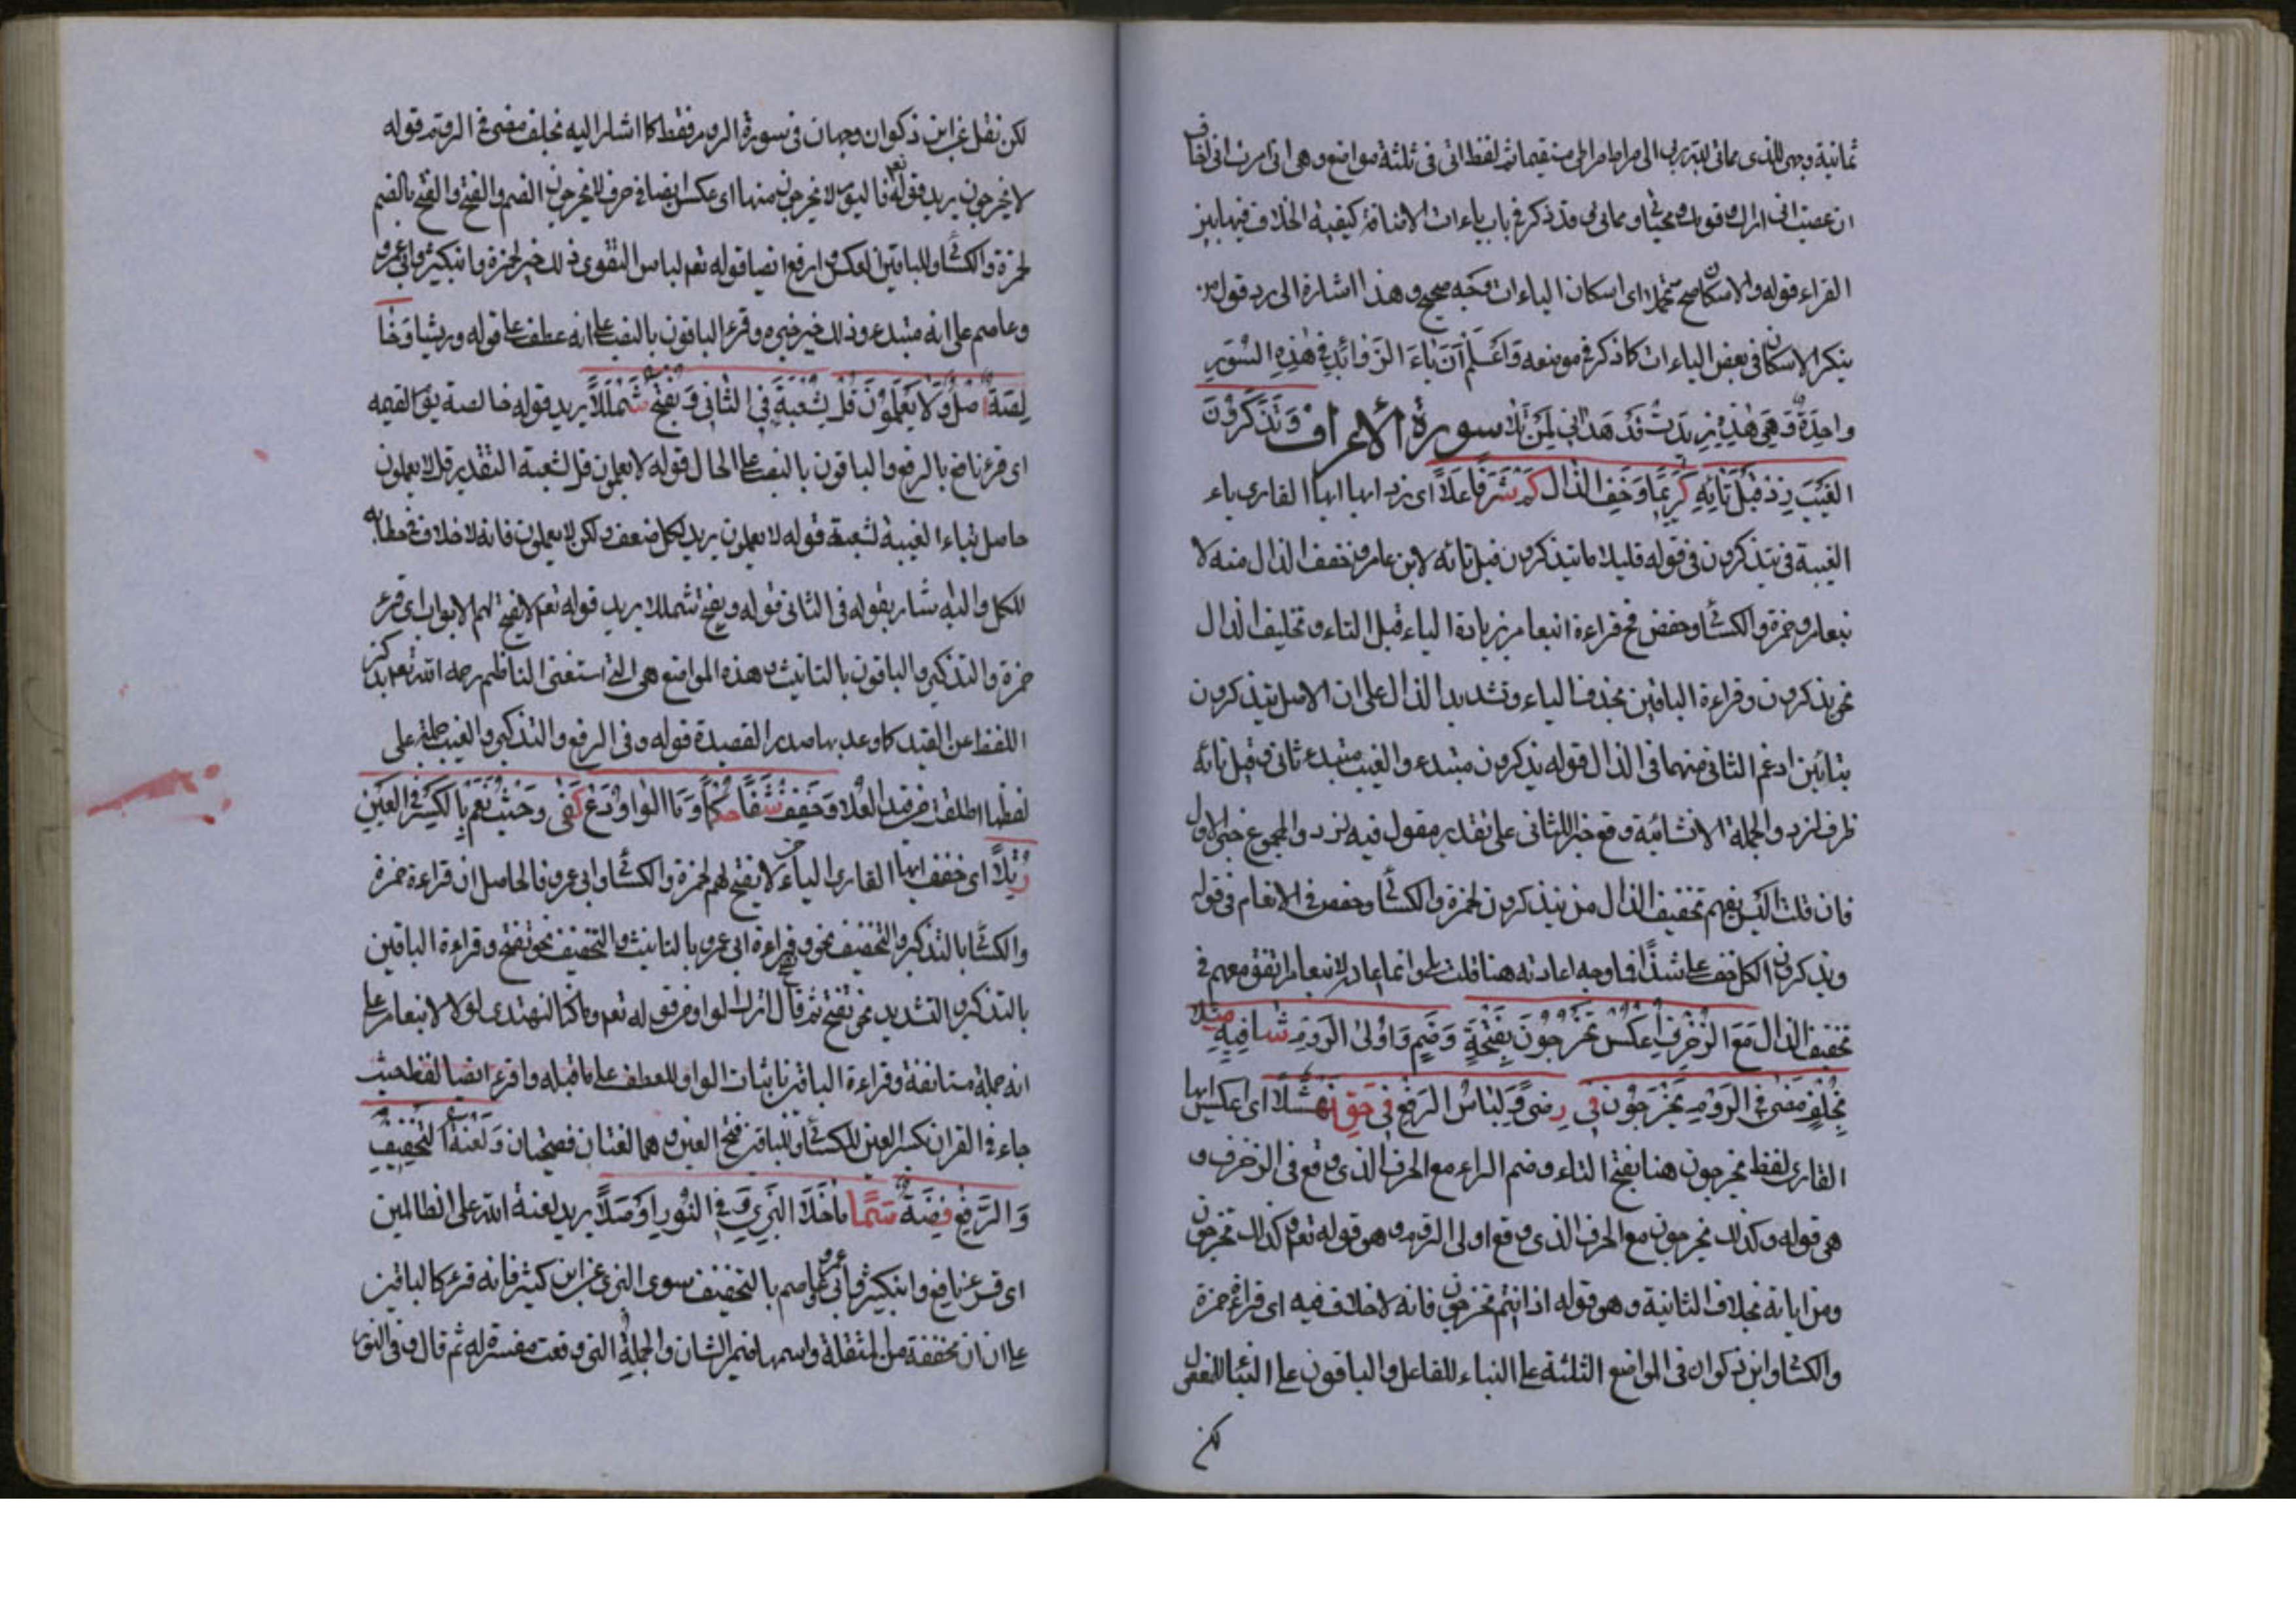 ثمانية وجهي للذي مماتي لله ربي الى صراط صراطي مستقيما ثم لفظ اني في ثلثة مواضع وهي اني امرت اني اخاف
ان عصيت اني اراك وقومك ومحياي ومماتي وقد ذكر في باب ياءات الاضافة كيفية الخلاف فيها بين
القراء قوله والاسكان صح تحملا اى اسكان الياءات وجه صحيح وهذا اشارة الى رد قول من
ينكر الاسكان في بعض الياءات كما ذكر في موضعه وَاعْلَمْ اَنَّ يَاءَ الزَّوائِدِ في هٰذِهِ السُّوَرِ
واحِدَةٌ وَهِيَ هٰذِهِ زِيدَتْ قَدْ هَدٰاني لِمَنْ تَلَا سورة الأعراف وَتَذَّكَّرُونَ
الغَيْبَ زِدْ قَبْلَ تَائِهِ كَرِيمًا وَخِفُّ الذّالِ كَمْ شَرَفًا عَلَا اى زد ايها القارى ياء
الغيبة في يتذكرون في قوله قليلا ما يتذكرون قبل تائه لابن عامر وخفف الذال منه لا
بنعامر وحمزة والكسائي وحفص فح قراءة ابنعامر بزيادة الياء قبل التاء وتخفيف الذال
نحو يذكرون وقراءة الباقين بحذف الياء وتشديد الذال على ان الاصل تتذكرون
بتائين ادغم الثاني منهما في الذال قوله يذكرون مبتدء والغيب مبتدء ثاني وقبل تائه
ظرف لزد والجملة الانشائية وقع خبرا للثاني على تقدير مقول فيه زد والمجموع خبر الاول
فان قلت اليس يفهم تخفيف الذال من يتذكرون لحمزة والكسائي وحفص في الانعام في قوله
وتذكرون الكل خف على شذا فما وجه اعادته هنا قلت انما اعاد لان ابنعامر اتفق معهم في
تخفيف الذال مَعَ الزُّخْرُفِ اعْكِسْ تُخْرَجُونَ بِفَتْحَةٍ وَضَمٍّ وَاُولَى الرُّومِ شَافِيهِ مُثِّلَا
بِخُلْفٍ مَضَى فِي الرُّومِ لَا يَخْرُجُونَ فِي رِضًى وَلِبَاسُ الرَّفْعُ فِي حَقِّ نَهْشَلَا اى اعكس ايها
القارى لفظ تخرجون هنا بفتح التاء وضم الراء مع الحرف الذى وقع في الزخرف و
هي قوله وكذلك تخرجون مع الحرف الذى وقع اولى الروم وهو قوله تعم وكذلك تخرجون
ومن اياته بخلاف الثانية وهو قوله اذا انتم تخرجون فانه لا خلاف فيه اى قراءة حمزة
والكسائي وابن ذكوان في المواضع الثلثة على البناء للفاعل والباقون على البناء للمفعول
لكن
لكن نقل عن ابن ذكوان وجهان في سورة الروم فقط كما اشار اليه بخلف مضى في الروم قوله
لا يخرجون يريد قوله تعم فاليوم لا يخرجون منها اى عكس ايضا في حرف لا يخرجون الضم والفتح والفتح بالضم
لحمزة والكسائي وللباقين العكس وارفع ايضا قوله تعم لباس التقوى ذلك خير لحمزة وابنكثير وابي عمرو
وعاصم على انه مبتدء وذلك خير خبره وقرء الباقون بالنصب على انه عطف على قوله وريشا وَخَا
لِصَةٌ اَصْلٌ وَلَا يَعْلَمُونَ قُلْ لِشُعْبَةَ فِي الثَّانِي وَيُفْتَحُ شَمْلَلَا يريد قوله خالصة يوم القيمه
اى قرء نافع بالرفع والباقون بالنصب على الحال قوله لا يعلمون قل لشعبة التقدير قل لا يعلمون
حاصل بياء الغيبة لشعبة قوله لا يعلمون يريد لكل ضعف ولكن لا يعلمون فانه لا خلاف في خطابه
للكل واليه اشار بقوله في الثاني قوله ويفتح شمللا يريد قوله تعم لا يفتح لهم الابواب اى قرء
حمزة والتذكير والباقون بالتانيث وهذه المواضع هي التي استغنى الناظم رحمه الله تعم بذكر
اللفظ عن القيد كما وعد بها صدر القصيدة قوله وفي الرفع والتذكير والغيب جملة على
لفظها اطلقت من قيد العلا وَخَفِّفْ شَفَا حُكْمًا وَمَا الْوَاوَ دَعْ كَفَى وَحَيْثُ نَعَمْ بِالْكَسْرِ فِي الْعَيْنِ
رُتِّلَا اى خفف ايها القارى التاء من لا يفتح لهم لحمزة والكسائي وابي عمرو فالحاصل ان قراءة حمزة
والكسائي بالتذكير والتخفيف نحو يفتح وقراءة ابي عمرو بالتانيث والتخفيف نحو تفتح وقراءة الباقين
بالتذكير والتشديد نحو تفتح ثم قال اترك الواو من قوله تعم وما كنا لنهتدى لولا لابنعامر على
انه جملة مستانفة وقراءة الباقين باثبات الواو للعطف على ما قبله واقرء ايضا لفظ حيث
جاء في القران بكسر العين للكسائي وللباقين فتح العين وهما لغتان فصيحتان وَلَعْنَةُ التَّخْفِيفُ
وَالرَّفْعُ نَصَّهُ سَمَا مَا خَلَا الْبَزِّي وَفِي النُّورِ اُوصِلَا يريد لعنة الله على الظالمين
اى قرء نافع وابنكثير وابي عمرو وعاصم بالتخفيف سوى البزي عن ابن كثير فانه قرء كالباقين
على ان ان مخففة من المثقلة واسمها ضمير الشان والجملة التي وقعت مفسرة له ثم قال وفي النور